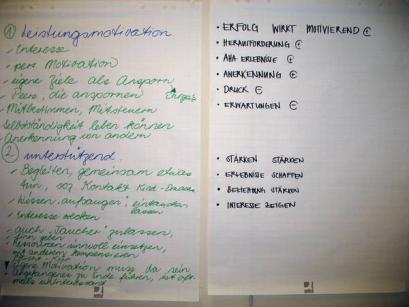 ① Leistungsmotivation
- Interesse
- pers. Motivation
- eigene Ziele als Ansporn
- Peers, die anspornen
- Mitbestimmen, Mitsteuern
Selbstständigkeit leben können
Anerkennung von anderen
② unterstützend
- Begleiten, gemeinsam etwas
tun, Kontakt Kind-
- Wissen "aufsaugen"
lassen
- Interesse wecken
- auch "Tauchen" zulassen,
einsetzen,
mit anderen kompensieren
! Eigene Motivation muss da sein
zu Ende führen, ist oft-
mals
• ERFOLG WIRKT MOTIVIEREND +
• HERAUSFORDERUNG +
• AHA ERLEBNISSE +
• ANERKENNUNG +
• DRUCK -
• ERWARTUNGEN -
• STÄRKEN STÄRKEN
• ERLEBNISSE SCHAFFEN
• BEZIEHUNG STÄRKEN
• INTERESSE ZEIGEN